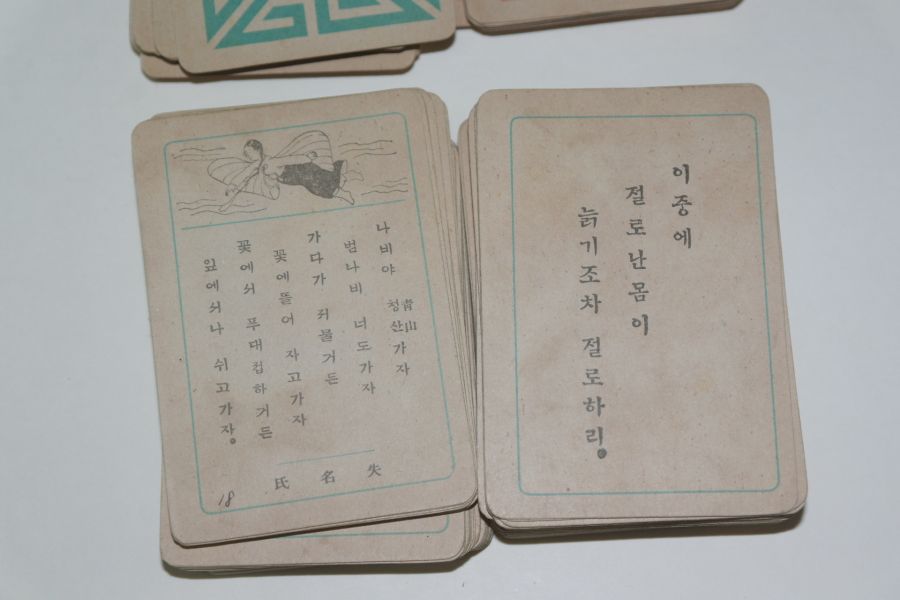 나비야 청산가자
靑山
범나비 너도가자
가다가 저물거든
꽃에들어 자고가자
꽃에서 푸대접하거든
잎에서나 쉬고가자。
失名氏
18
이중에
절로난몸이
늙기조차 절로하리。